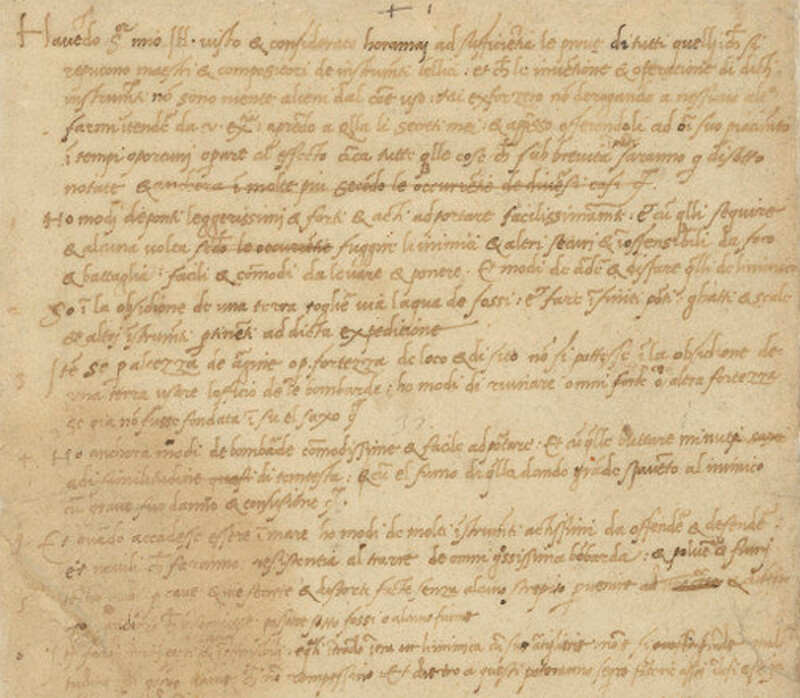 Havēdo S.or mio Ill. visto & considerato horamai ad sufficiētia le prove di tutti quelli che si
reputono maestri & compositori de instrumēti bellici: et che le inventione & operatione di dicti
instrumēti nō sono niente alieni dal cōe uso: mi exforzerò nō derogando a nessuno altro
farmi intendē da v. ex.tia: aprēdo a q̄lla li secreti mei: & apresso offerendoli ad ōi suo piacimēto
ī tempi oportuni operare cū effecto circa tutte q̄lle cose che sub brevità saranno qui disotto
notate & anchora ī molte più secōdo le occurrētie de divēsi casi
Ho modi de ponti leggerissimi & forti & acti ad portare facilissimamēte: et cū q̄lli seguire
& alcuna volta secōdo le occurrētie fuggire li inimici & altri securi & īoffensibili da foco
& battaglia: facili & cōmodi da levare & ponere. Et modi de ardē & disfare q̄lli de linimico
So ī la obsidione de una terra toglie via laqua de fossi: et fare īfiniti pōti ghatti & scale
& altri īstrumēti p̄tinēti ad dicta expeditione
Itē se p altezza de argine o p fortezza de loco & di sito nō si potesse ī la obsidione de
una terra usare lofficio de le bombarde: ho modi di ruinare omni forte o altra fortezza
se già nō fusse fondata ī su el saxo
Ho anchora modi de bombarde cōmodissime & facile ad portare: Et cū q̄lle buttare minuti
ad similitudine quasi di tempesta: & cū el fumo di q̄lla dando grāde spavēto al inimico
cū grave suo danno & confusione
Et quādo accadesse essere ī mare ho modi de molti īstrumēti actissimi da offendē & defendē
et navili che faranno resistentia al trarre de omni grossissima bōbarda: & polvē & fumi
cave & vie secrete & distorte facte senza alcuno strepito
passare sotto fossi o alcuno fiume